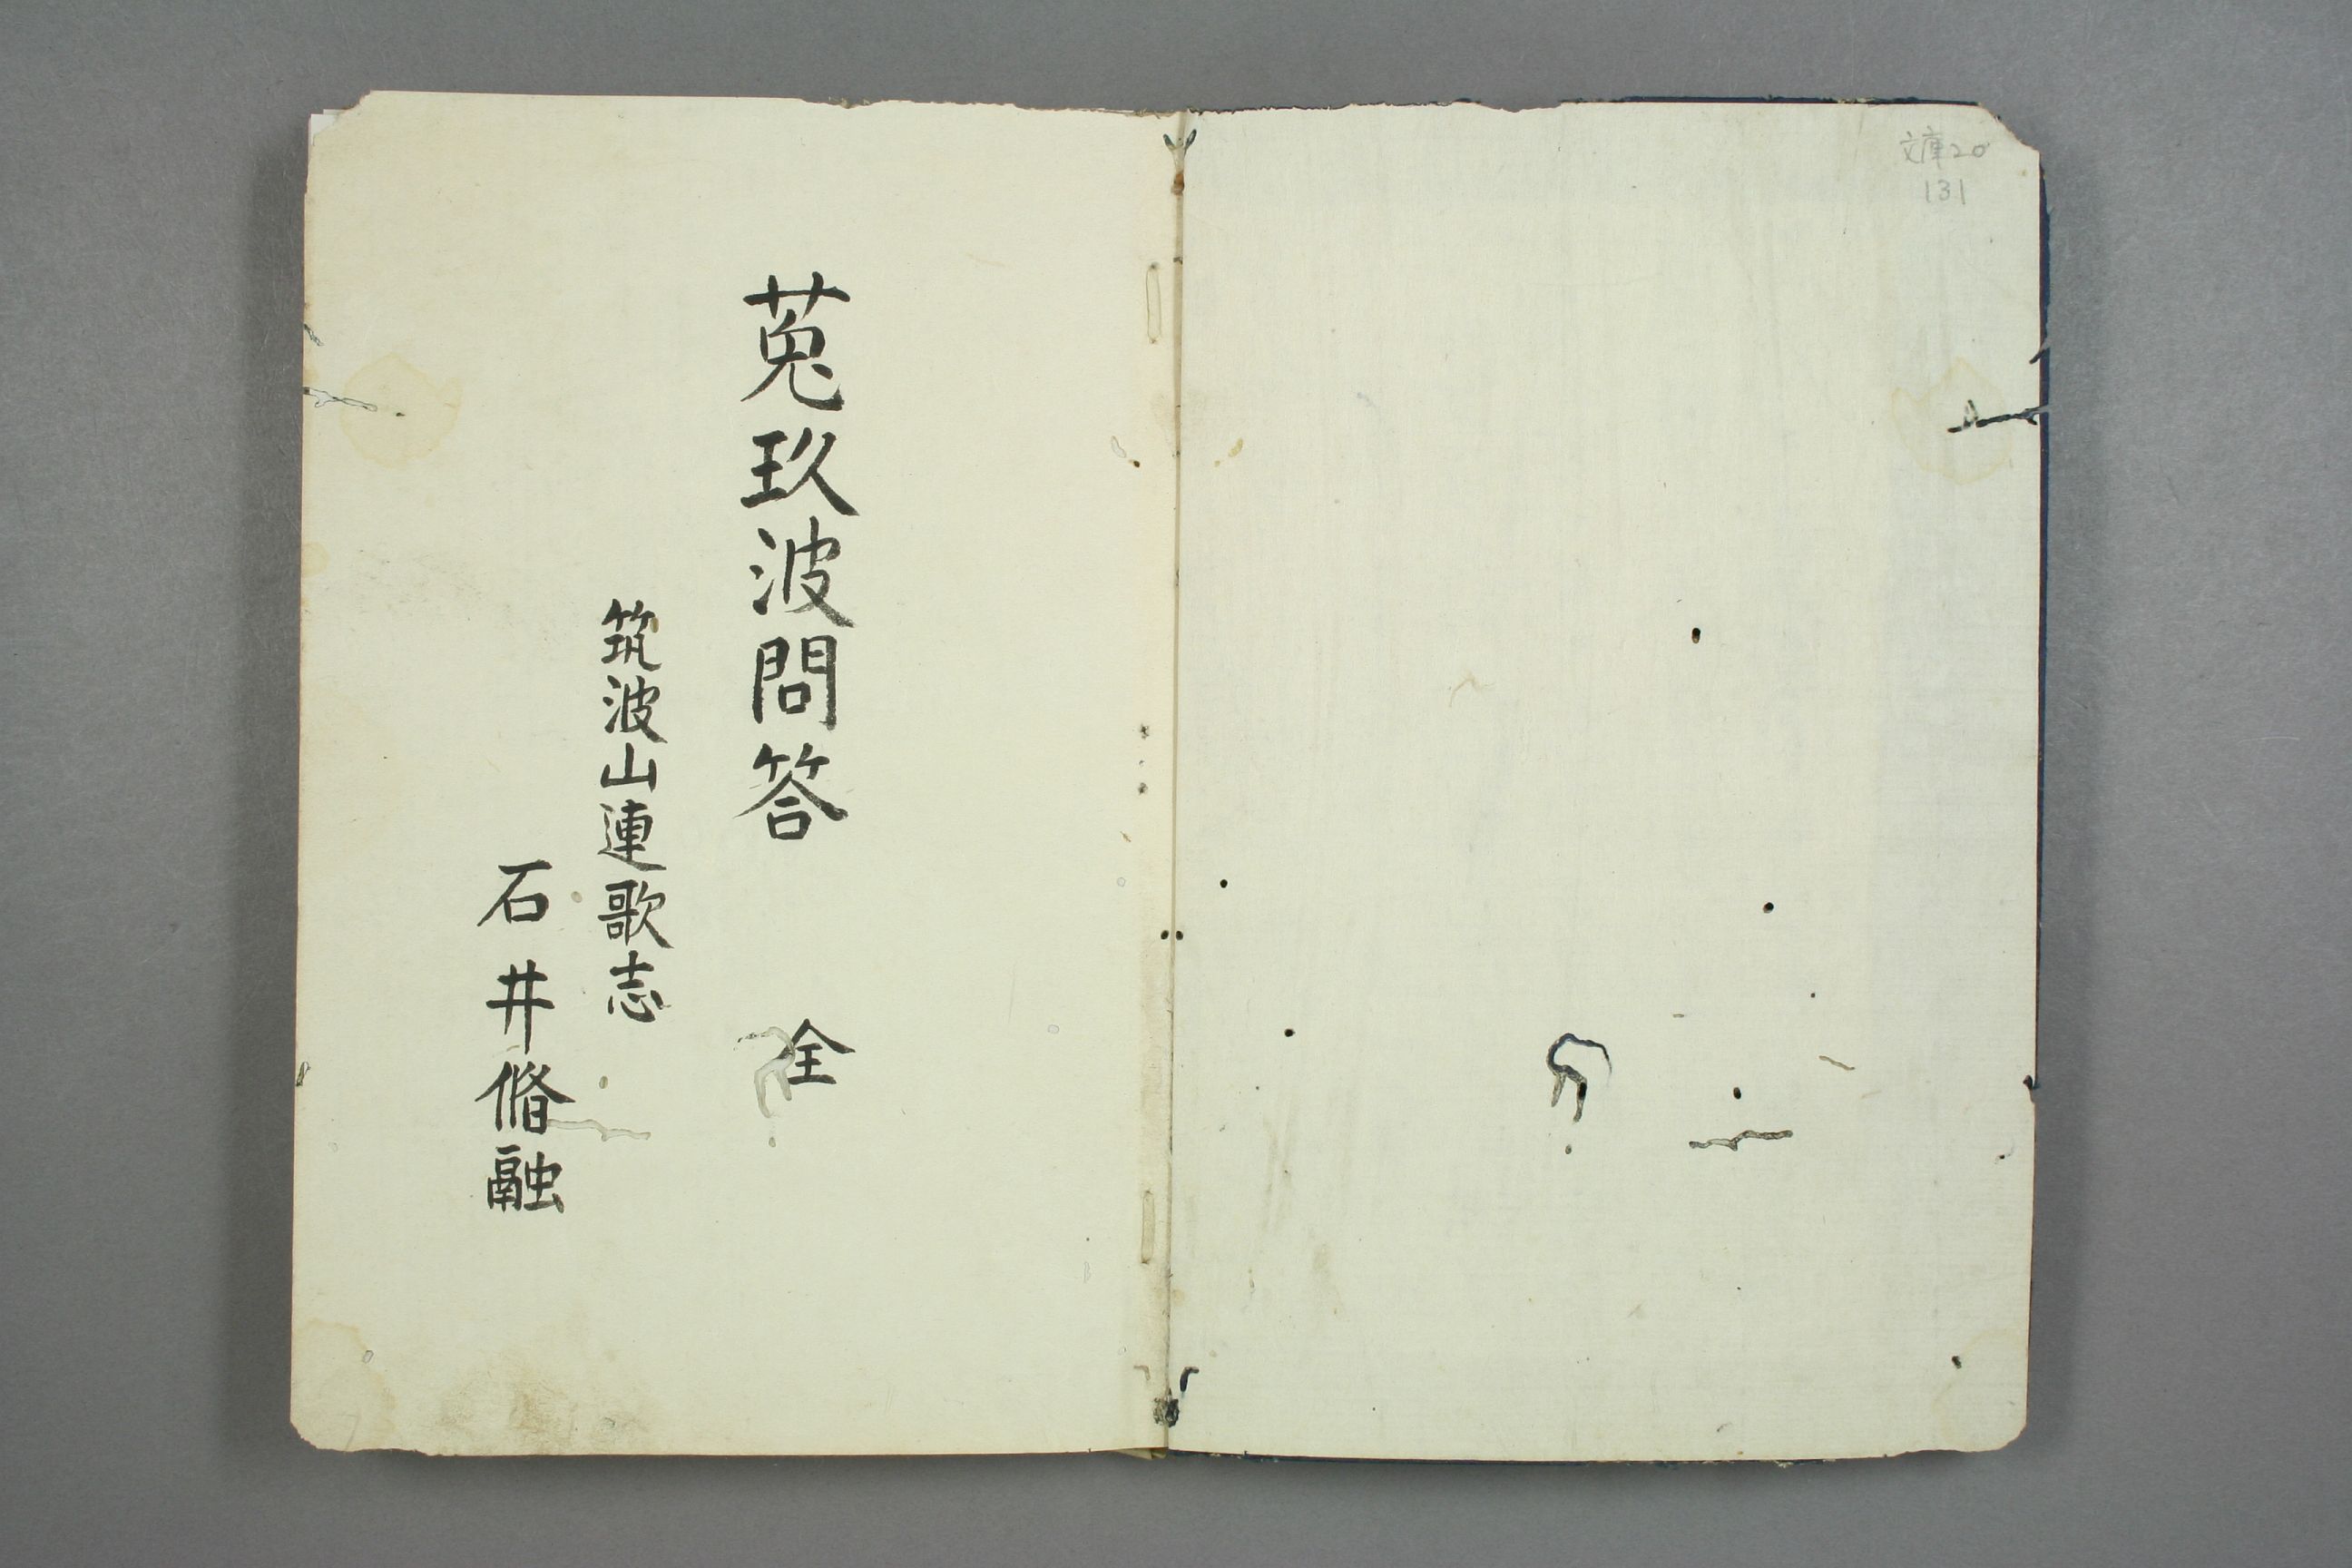 文庫20
131
菟玖波問答 全
筑波山連歌志
石井脩融